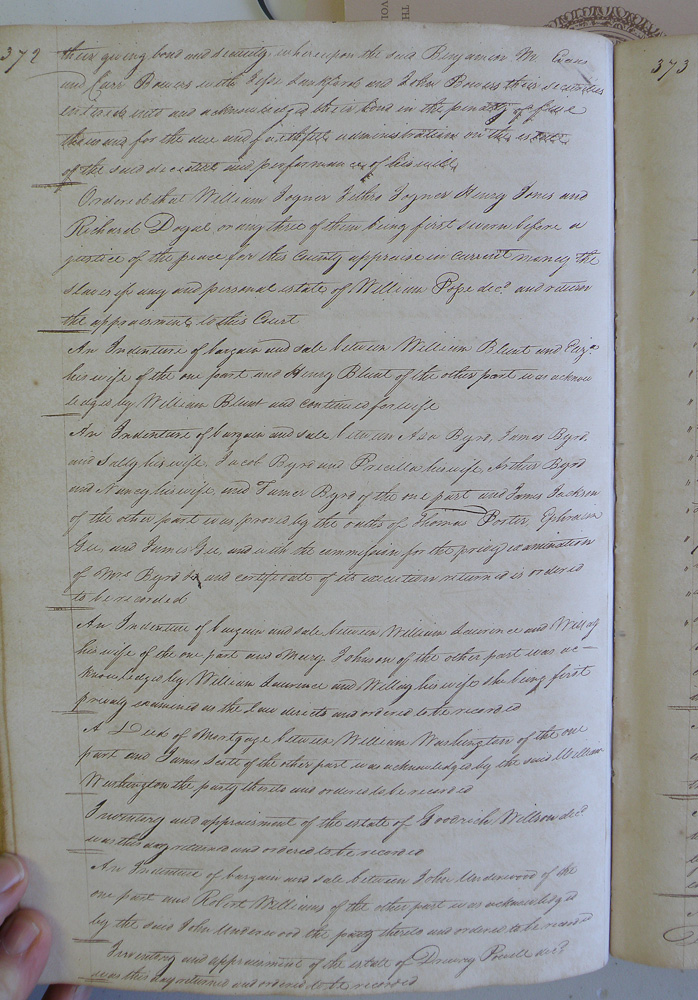 TH
VOL
372
373
their giving bond and security, whereupon the said Benjamin M. Evans
and Carr Bowers with Jesse Lankford and John Bowers their securities
entered into and acknowledged their bond in the penalty of five
thousand for the due and faithful administration on the estate
of the said decedent and performance of his will
Ordered that William Joyner Joyner Henry Jones and
Richard Doyal, or any three of them being first sworn before a
justice of the peace for this County appraise in current money the
slaves if any and personal estate of William Pope decd. and return
the appraisement to this Court
An Indenture of bargain and sale between William Blunt and Eliza
his wife of the one part and Henry Blunt of the other part was acknow
ledged by William Blunt and continued for wife
An Indenture of bargain and sale between Asa Byrd, James Byrd,
and Sally his wife, Jacob Byrd and Priscilla his wife, Arthur Byrd
and Nancy his wife, and Tamer Byrd of the one part and James Jackson
of the other part was proved by the oaths of Thomas Porter, Ephraim
Gee and James Gee, and with the commission for the privy examination
of Mrs Byrd & and certificate of its execution returned is ordered
to be recorded
An Indenture of bargain and sale between William Lawrence and
his wife of the one part and Mary Johnson of the other part was ac-
knowledged by William Lawrence and his wife she being first
privily examined as the Law directs and ordered to be recorded
A Deed of Mortgage between William Washington of the one
part and James of the other part was acknowledged by the said William
Washington the party thereto and ordered to be recorded
Inventory and appraisment of the estate of Goodrich Willson decd.
was this day returned and ordered to be recorded
An Indenture of bargain and sale between John Underwood of the
one part and Robert Williams of the other part was acknowledged
by the said John Underwood the party thereto and ordered to be recorded
Inventory and appraisment of the estate of Drewry Powell decd.
was this day returned and ordered to be recorded